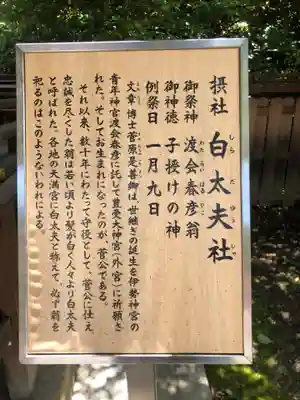 摂社 白太夫社
しらだゆうしゃ
御祭神 渡会春彦翁
わたらいはるひこ
御神徳 子授けの神
例祭日 一月九日
文章博士菅原是善卿は、世継ぎの誕生を伊勢神宮の
青年神官渡会春彦に託して豊受大神宮(外宮)に祈願さ
れた。そしてお生まれになったのが、菅公である。
それ以来、数十年にわたって守役として、菅公に仕え
忠誠を尽くした翁は若い頃より髪が白く人々より白太夫
と呼ばれた。各地の天満宮に白太夫と称えて、必ず翁を
祀るのはこのようないわれによる。